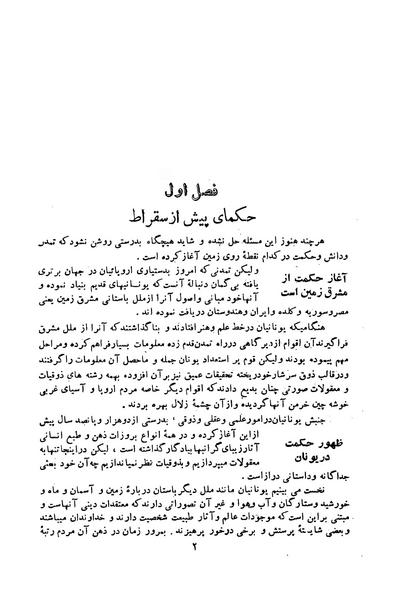 فصل اول
حکمای پیش از سقراط
هرچند هنوز این مسئله حل نشده و شاید هیچگاه بدرستی روشن نشود که تمدن
ودانش وحکمت در کدام نقطهٔ روی زمین آغاز کرده است .
آغاز حکمت از
مشرق زمین است
ولیکن تمدنی که امروز بدستیاری اروپائیان در جهان برتری
یافته بی گمان دنبالهٔ آنست که یونانیهای قدیم بنیاد نموده و
آنها خود مبانی واصول آنرا از ملل باستانی مشرق زمین یعنی
مصر و سوریه و کلده و ایران و هندوستان دریافت نموده اند .
هنگامیکه یونانیان در خط علم و هنر افتادند و بنا گذاشتند که آنرا از ملل مشرق
فرا گیرند آن اقوام از دیرگاهی در راه تمدن قدم زده معلومات بسیار فراهم کرده و مراحل
مهم پیموده بودند ولیکن قوم پر استعداد یونان جمله و ماحصل آن معلومات را گرفتند
و در قالب ذوق سرشار خود ریخته تحقیقات عمیق نیز بر آن افزوده بهمه رشته های ذوقیات
و معقولات صورتی چنان بدیع دادند که اقوام دیگر خاصه مردم اروپا و آسیای غربی
خوشه چین خرمن آنها گردیده و از آن چشمهٔ زلال بهره بردند .
جنبش یونانیان در امور علمی و عقلی و ذوقی ، بدرستی از دو هزار و پانصد سال پیش
ظهور حکمت
در یونان
از این آغاز کرده و در همهٔ انواع بروزات ذهن و طبع انسانی
آثار زیبای گرانبها بیادگار گذاشته است ، لیکن در اینجا تنها به
معقولات میپردازیم و بذوقیات نظر نمیاندازیم چه آن خود بحثی
جداگانه و داستانی دراز است .
نخست می بینیم یونانیان مانند ملل دیگر باستان دربارهٔ زمین و آسمان و ماه و
خورشید و ستارگان و آب و هوا و غیر آن تصوراتی دارند که معتقدات دینی آنهاست و
مبتنی بر این است که موجودات عالم و آثار طبیعت شخصیت دارند و خداوندان میباشند
و بعضی شایستهٔ پرستش و برخی در خور پرهیزند . بمرور زمان در ذهن آن مردم رتبهٔ
۲